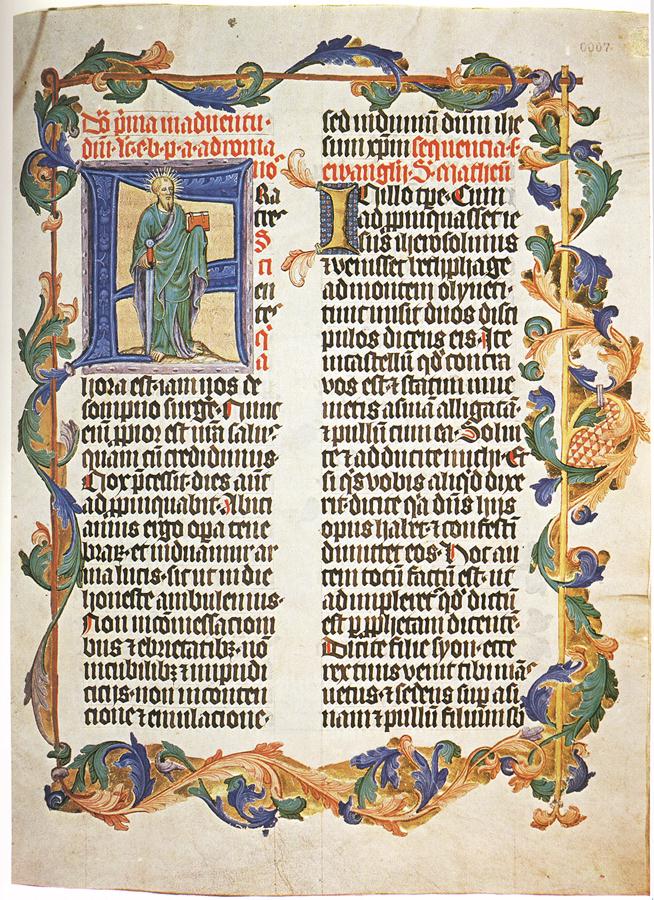 Dō p̄ma inadventu·
dn̄i· lc̄·e·b·p·a·adroma
nos·
Ra
tres
S
ci
en
tes
q̄
a
hora est· iam nos de
sompno surgē· Nunc
eni᷒ ꝓpior est nr̄a salus
quam cū credidimus·
Nox p̄cessit· dies aut̄
adpropinquabit· Abici
amus ergo oꝑa tene
braꝝ· et induamur ar
ma lucis· sicut in die
honeste ambulemus·
Non incomessacioni
bus ⁊ ebrietatibꝫ· nō
incubilibꝫ ⁊ inpudi
ciciis· non inconten
cione ⁊ emulacione·
sed induimini dūm ihe
sum xp̄m sequencia s
evangelii· S· matheū
In illo tꝑe· Cum
adꝓpinquasset ie
sus iherosolimis
⁊ venisset bethphage
admontem olyveti·
tunc misit duos disci
pulos dicens eis· Ite
incastellū qd̄ contra
vos est· ⁊ statim inve
nietis asinā alligatā·
⁊ pullū cum ea· Solvi
te ⁊ adducite michi· Et
si q̄s vobis aliqd̄ dixe
rit· dicite q̄a dn̄s hijs
opus habet· ⁊ confestī
dimittet eos· Hoc au
tem totū factū est· ut
adimpleret᷒ qd̄ dictū
est ꝑ ꝓphetam dicentē·
Dicite filie syon· ecce
rex tuus venit tibi mā
suetus· ⁊ sedens suꝑ asi
nam ⁊ pullū filium sb
0007